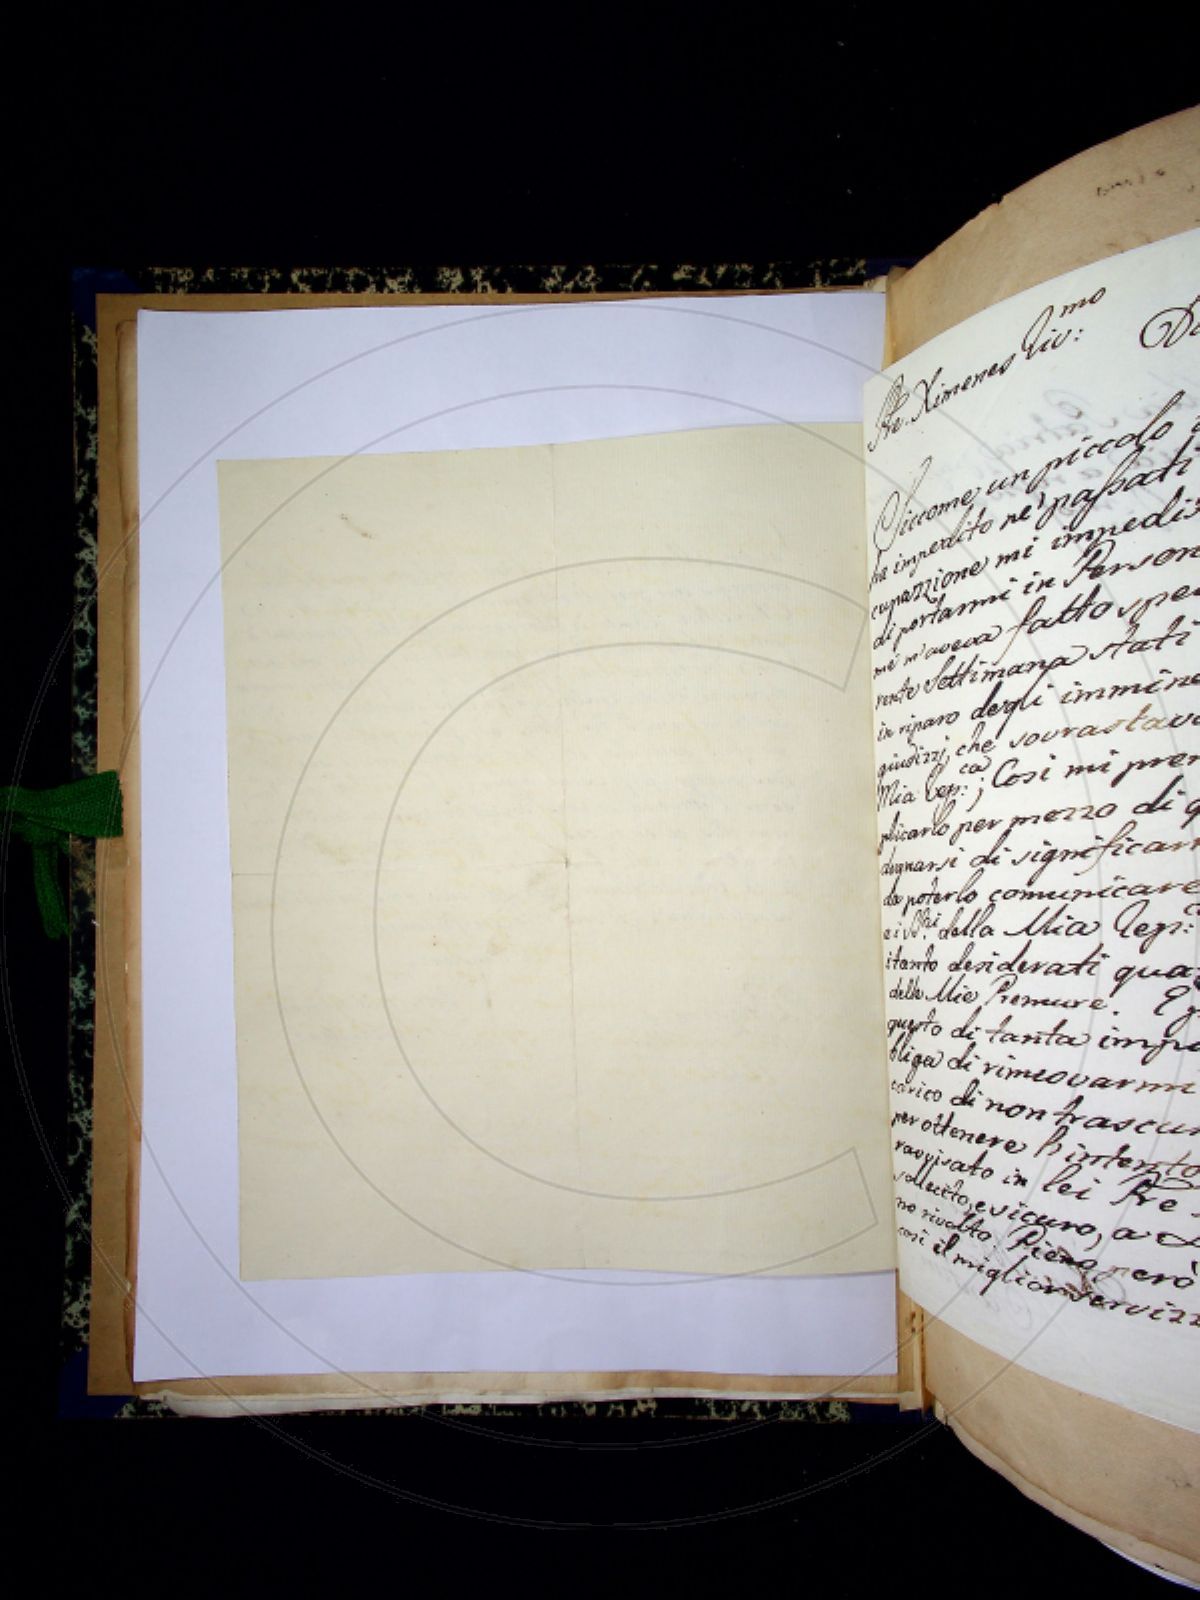 Pre. Ximenes Riv:mo
Siccome un piccolo
ha impedito ne' passati
cupazzione mi impedis
di portarmi in Person
mi m'aveva fatto spe
rente Settimana stati
in riparo degli immine
giudizzj, che sovrastava
Mia Rep:ca; Così mi pre
plicarlo per mezzo di q
degnarsi di significar
da poterlo comunicare
ei SSri della Mia Rep:c
itanto desiderati qua
delle Mie Premure.
questo di tanta impo
bliga di rinnovarmi
carico di non trascur
per ottenere l'intento
ravvisato in lei Pre
sollecito, e sicuro, a
no rivolto. Pieno però
così il miglior servizz